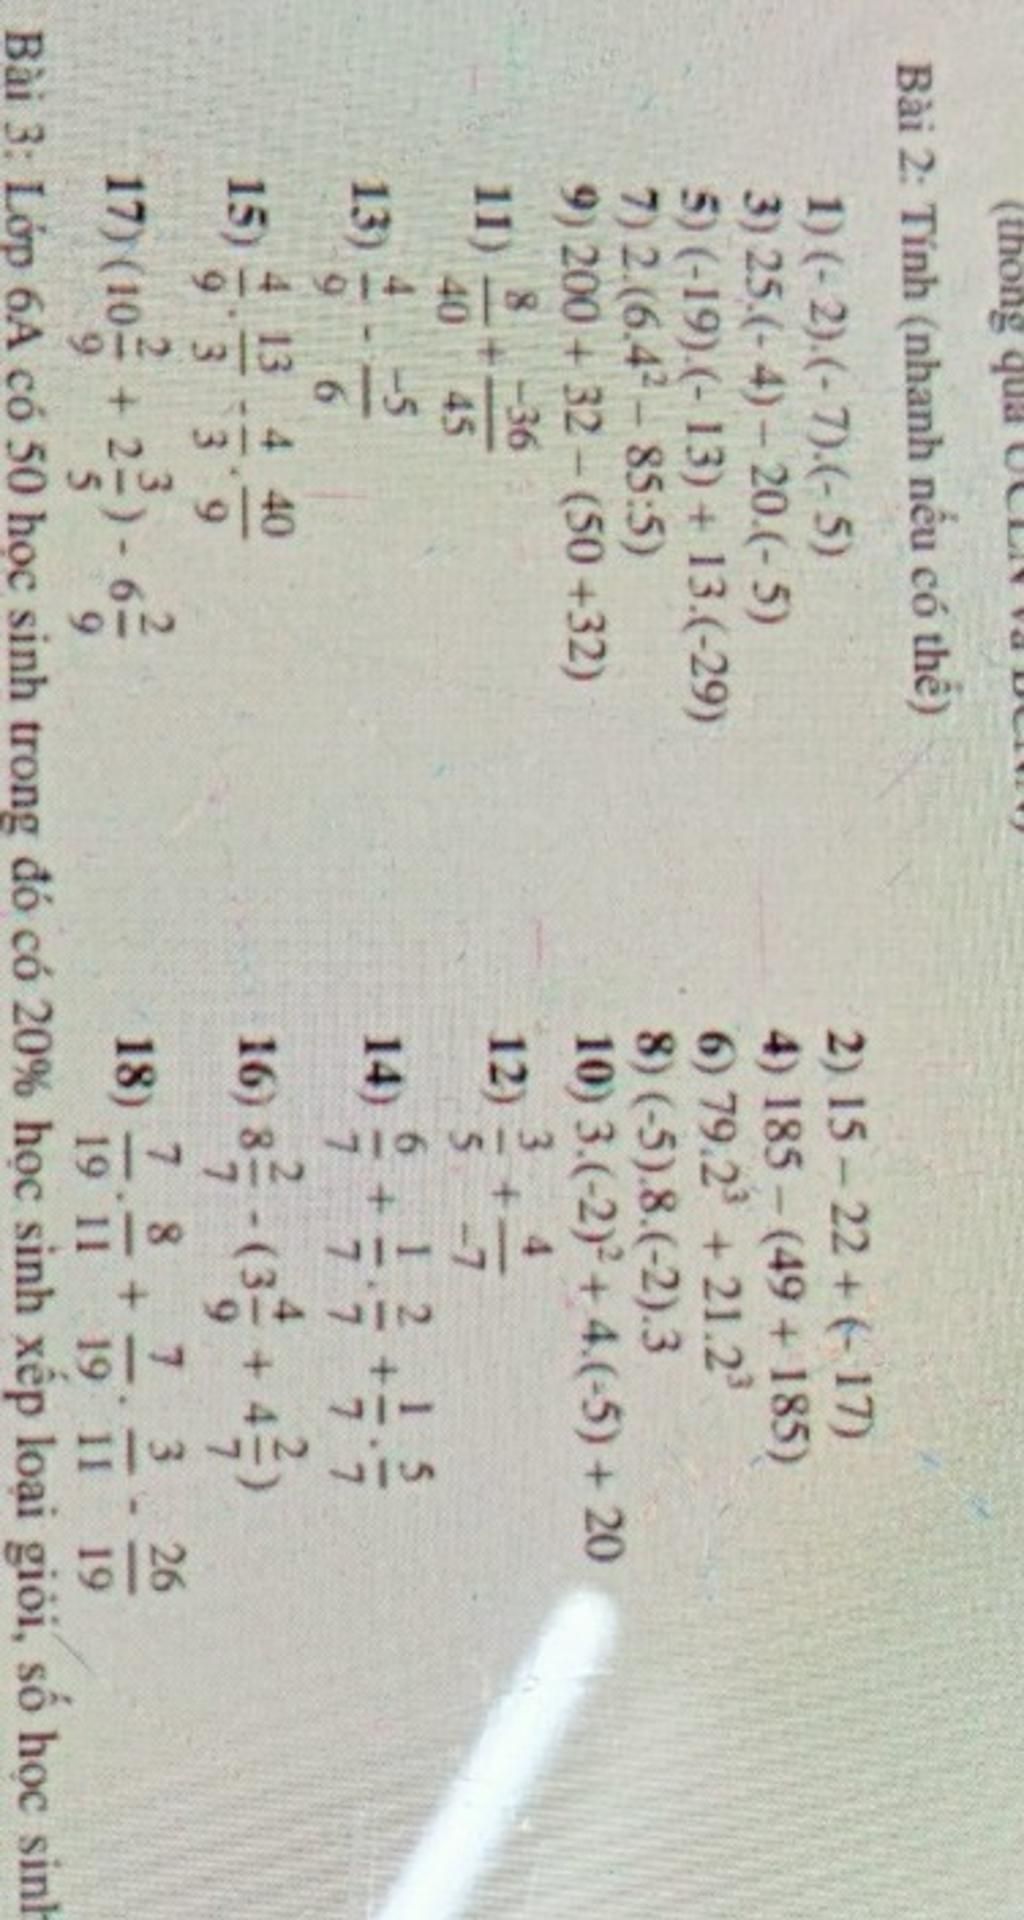 (thông qua ƯCLN và BCNN)
Bài 2: Tính (nhanh nếu có thể)
1) (- 2).(- 7).(- 5)
2) 15 – 22 + (- 17)
3) 25.(- 4) – 20.(- 5)
4) 185 – (49 + 185)
5) (-19).(- 13) + 13.(-29)
6) 79.2³ + 21.2³
7) 2.(6.4² – 85:5)
8) (-5).8.(-2).3
9) 200 + 32 – (50 +32)
10) 3.(-2)² + 4.(-5) + 20
11) 8/40 + -36/45
12) 3/5 + 4/-7
13) 4/9 - -5/6
14) 6/7 + 1/7 . 2/7 + 1/7 . 5/7
15) 4/9 . 13/3 - 4/3 . 40/9
16) 8 2/7 - (3 4/9 + 4 2/7)
17) (10 2/9 + 2 3/5) - 6 2/9
18) 7/19 . 8/11 + 7/19 . 3/11 - 26/19
Bài 3: Lớp 6A có 50 học sinh trong đó có 20% học sinh xếp loại giỏi, số học sinh